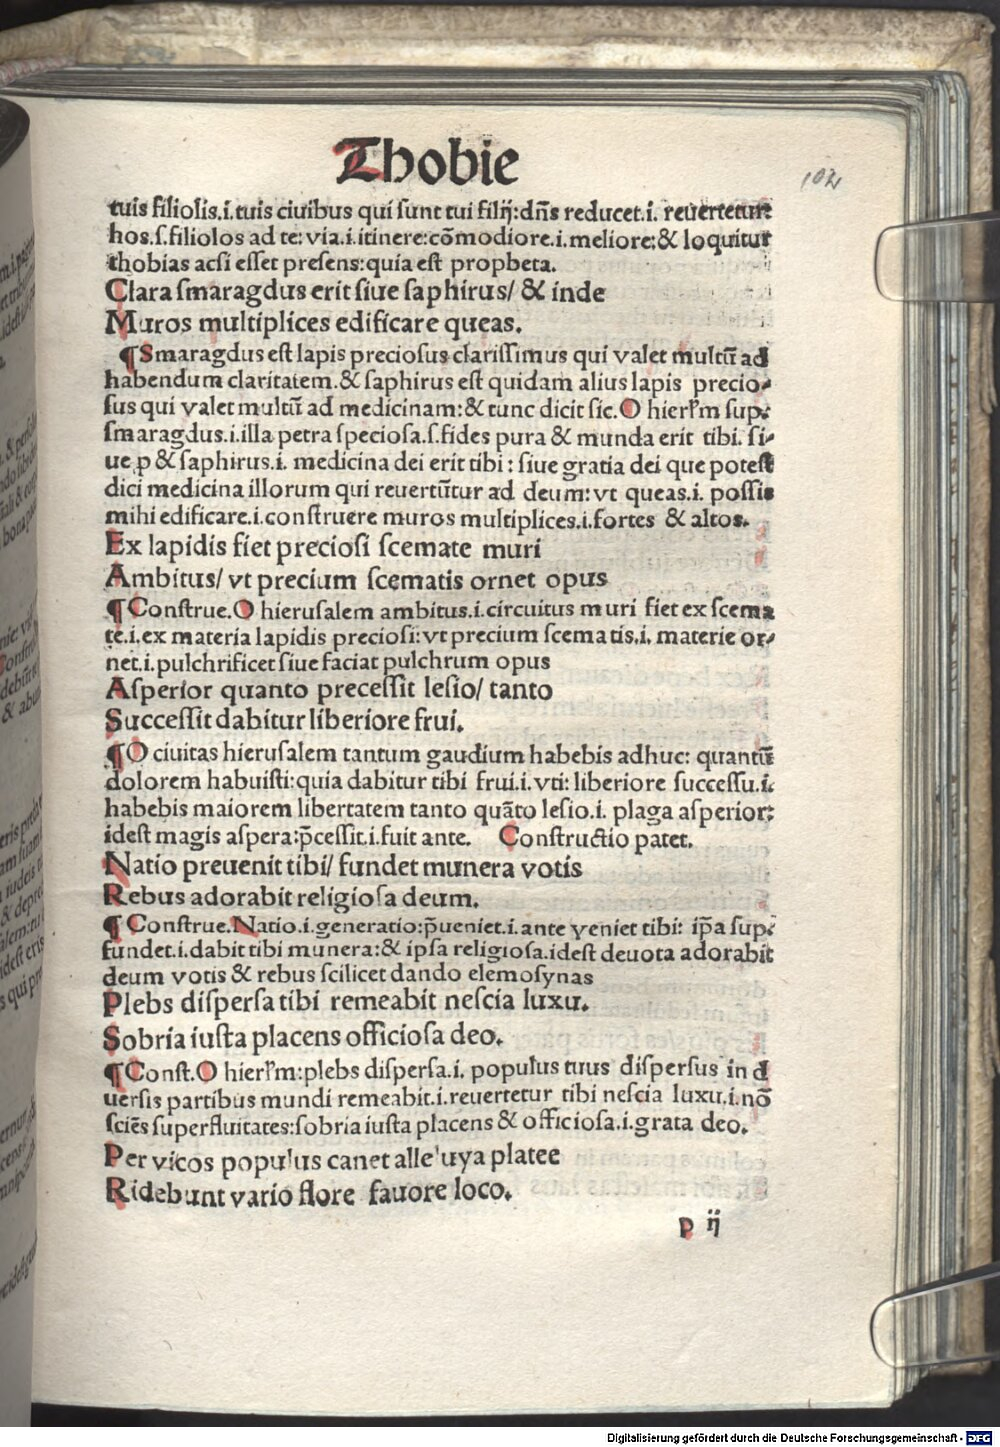 Thobie
102
tuis filiolis.i.tuis ciuibus qui sunt tui filij:dn̄s reducet.i. reuertetur:
hos.s.filiolos ad te: via.i.itinere:cōmodiore.i.meliore:& loquitur
thobias acsi esset presens:quia est propheta.
Clara smaragdus erit siue saphirus/ & inde
Muros multiplices edificare queas.
¶Smaragdus est lapis preciosus clarissimus qui valet multū ad
habendum claritatem.& saphirus est quidam alius lapis precio-
sus qui valet multū ad medicinam:& tunc dicit sic.O hierl'm sup.
smaragdus.i.illa petra speciosa.s.fides pura & munda erit tibi. si-
ue p & saphirus.i. medicina dei erit tibi : siue gratia dei que potest
dici medicina illorum qui reuertūtur ad deum: vt queas.i. possis
mihi edificare.i.construere muros multiplices.i.fortes & altos.
Ex lapidis fiet preciosi scemate muri
Ambitus/ vt precium scematis ornet opus
¶Construe.O hierusalem ambitus.i.circuitus muri fiet ex scema
te.i.ex materia lapidis preciosi:vt precium scematis.i. materie or-
net.i.pulchrificet siue faciat pulchrum opus
Asperior quanto precessit lesio/ tanto
Successit dabitur liberiore frui.
¶O ciuitas hierusalem tantum gaudium habebis adhuc: quantū
dolorem habuisti:quia dabitur tibi frui.i.vti: liberiore successu.i.
habebis maiorem libertatem tanto quāto lesio.i. plaga asperior:
idest magis aspera:p̄cessit.i.fuit ante. Constructio patet.
Natio preuenit tibi/ fundet munera votis
Rebus adorabit religiosa deum.
¶Construe.Natio.i.generatio:p̄ueniet.i.ante veniet tibi: ip̄a sup.
fundet.i.dabit tibi munera:& ipsa religiosa.idest deuota adorabit
deum votis & rebus scilicet dando elemosynas
Plebs dispersa tibi remeabit nescia luxu.
Sobria iusta placens officiosa deo.
¶Const.O hierl'm:plebs dispersa.i. populus tuus dispersus in d
uersis partibus mundi remeabit.i.reuertetur tibi nescia luxu.i.nō
sciēs superfluitates:sobria iusta placens & officiosa.i.grata deo.
Per vicos populus canet alleluya platee
Ridebunt vario flore fauore loco.
p ij
Digitalisierung gefördert durch die Deutsche Forschungsgemeinschaft - DFG